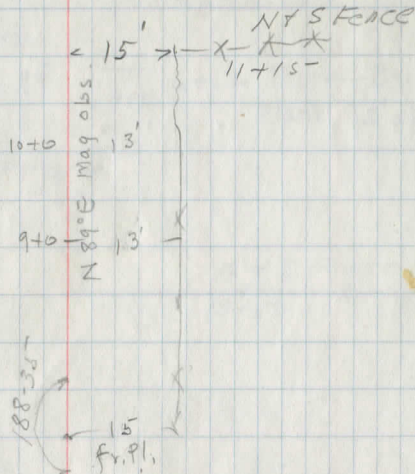 N & S Fence
15'
11+15
N 89°E mag obs.
10+0 13'
9+0 13'
188-35
15
fr. Pl.